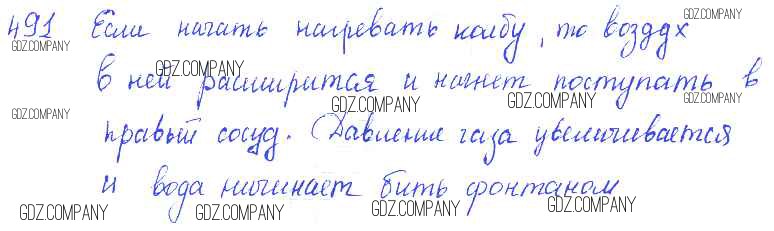 491 Если начать нагревать колбу, то воздух
в ней расширится и начнет поступать в
правый сосуд. Давление газа увеличивается
и вода начинает бить фонтаном
GDZ.COMPANY
GDZ.COMPANY
GDZ.COMPANY
GDZ.COMPANY
GDZ.COMPANY
GDZ.COMPANY
GDZ.COMPANY
GDZ.COMPANY
GDZ.COMPANY
GDZ.COMPANY
GDZ.COMPANY
GDZ.COMPANY